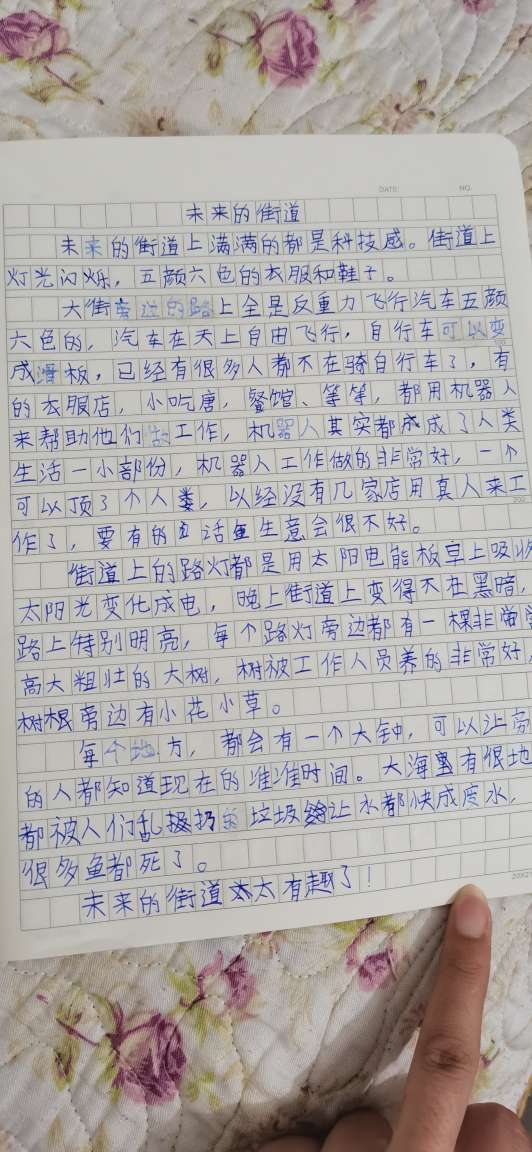 DATE: NO.
未来的街道
未来的街道上满满的都是科技感。街道上
灯光闪烁，五颜六色的衣服和鞋子。
大街旁边的路上全是反重力飞行汽车五颜
六色的，汽车在天上自由飞行，自行车可以变
成滑板，已经有很多人都不在骑自行车了，有
的衣服店，小吃唐，餐馆、等等，都用机器人
来帮助他们做工作，机器人其实都成成了人类
生活一小部份，机器人工作做的非常好，一个
可以顶了个人类，以经没有几家店用真人来工
作了，要有的话生意会很不好。
街道上的路灯都是用太阳电能板早上吸收
太阳光变化成电，晚上街道上变得不在黑暗，
路上特别明亮，每个路灯旁边都有一棵非常
高大粗壮的大树，树被工作人员养的非常好，
树根旁边有小花小草。
每个地方，都会有一个大钟，可以让旁
的人都知道现在的准准时间。大海里有很地
都被人们乱扔垃圾让水都快成废水，
很多鱼都死了。
未来的街道太有趣了！